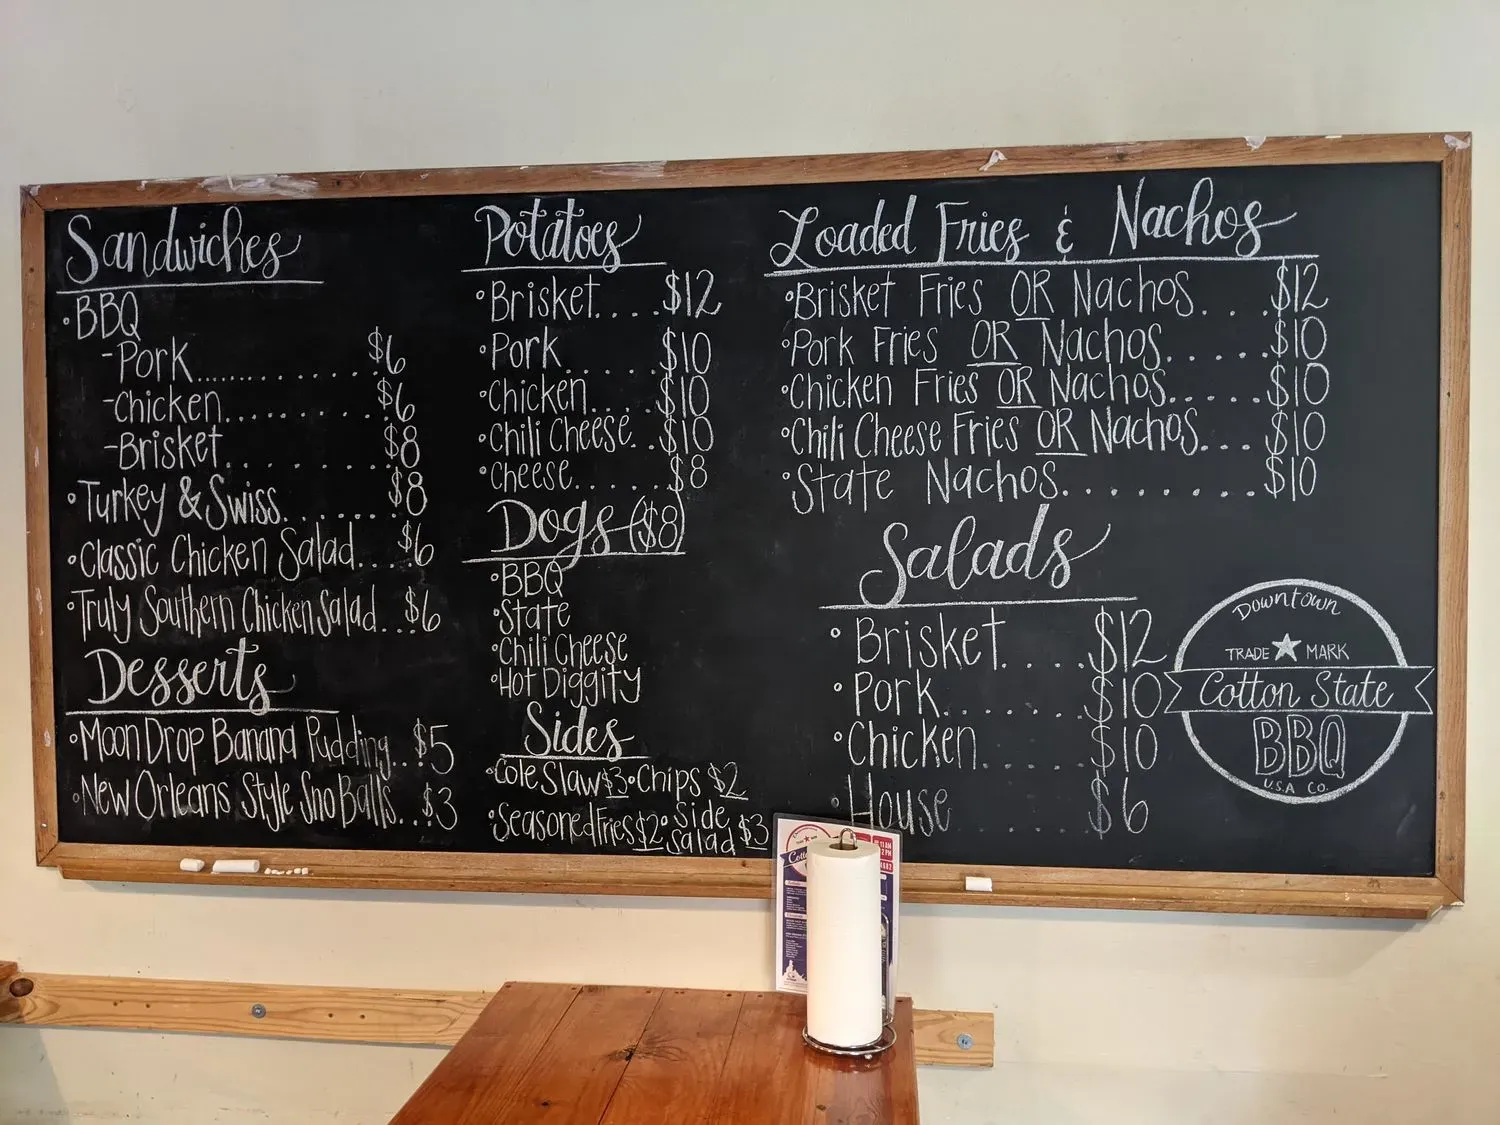 Sandwiches
•BBQ
-Pork.................$6
-Chicken.............$6
-Brisket.............$8
•Turkey & Swiss.......$8
•Classic Chicken Salad....$6
•Truly Southern Chicken Salad....$6
Desserts
•Moon Drop Banana Pudding...$5
•New Orleans Style Sno Balls...$3
Potatoes
•Brisket.....$12
•Pork.......$10
•Chicken.....$10
•Chili Cheese...$10
•Cheese......$8
Dogs ($8)
•BBQ
•State
•Chili Cheese
•Hot Diggity
Sides
•Cole Slaw $3 •Chips $2
•Seasoned Fries $2 •Side Salad $3
Loaded Fries & Nachos
•Brisket Fries OR Nachos....$12
•Pork Fries OR Nachos......$10
•Chicken Fries OR Nachos.....$10
•Chili Cheese Fries OR Nachos...$10
•State Nachos.........$10
Salads
•Brisket.....$12
•Pork.......$10
•Chicken......$10
•House......$6
Downtown
TRADE ★ MARK
Cotton State
BBQ
U.S.A Co.